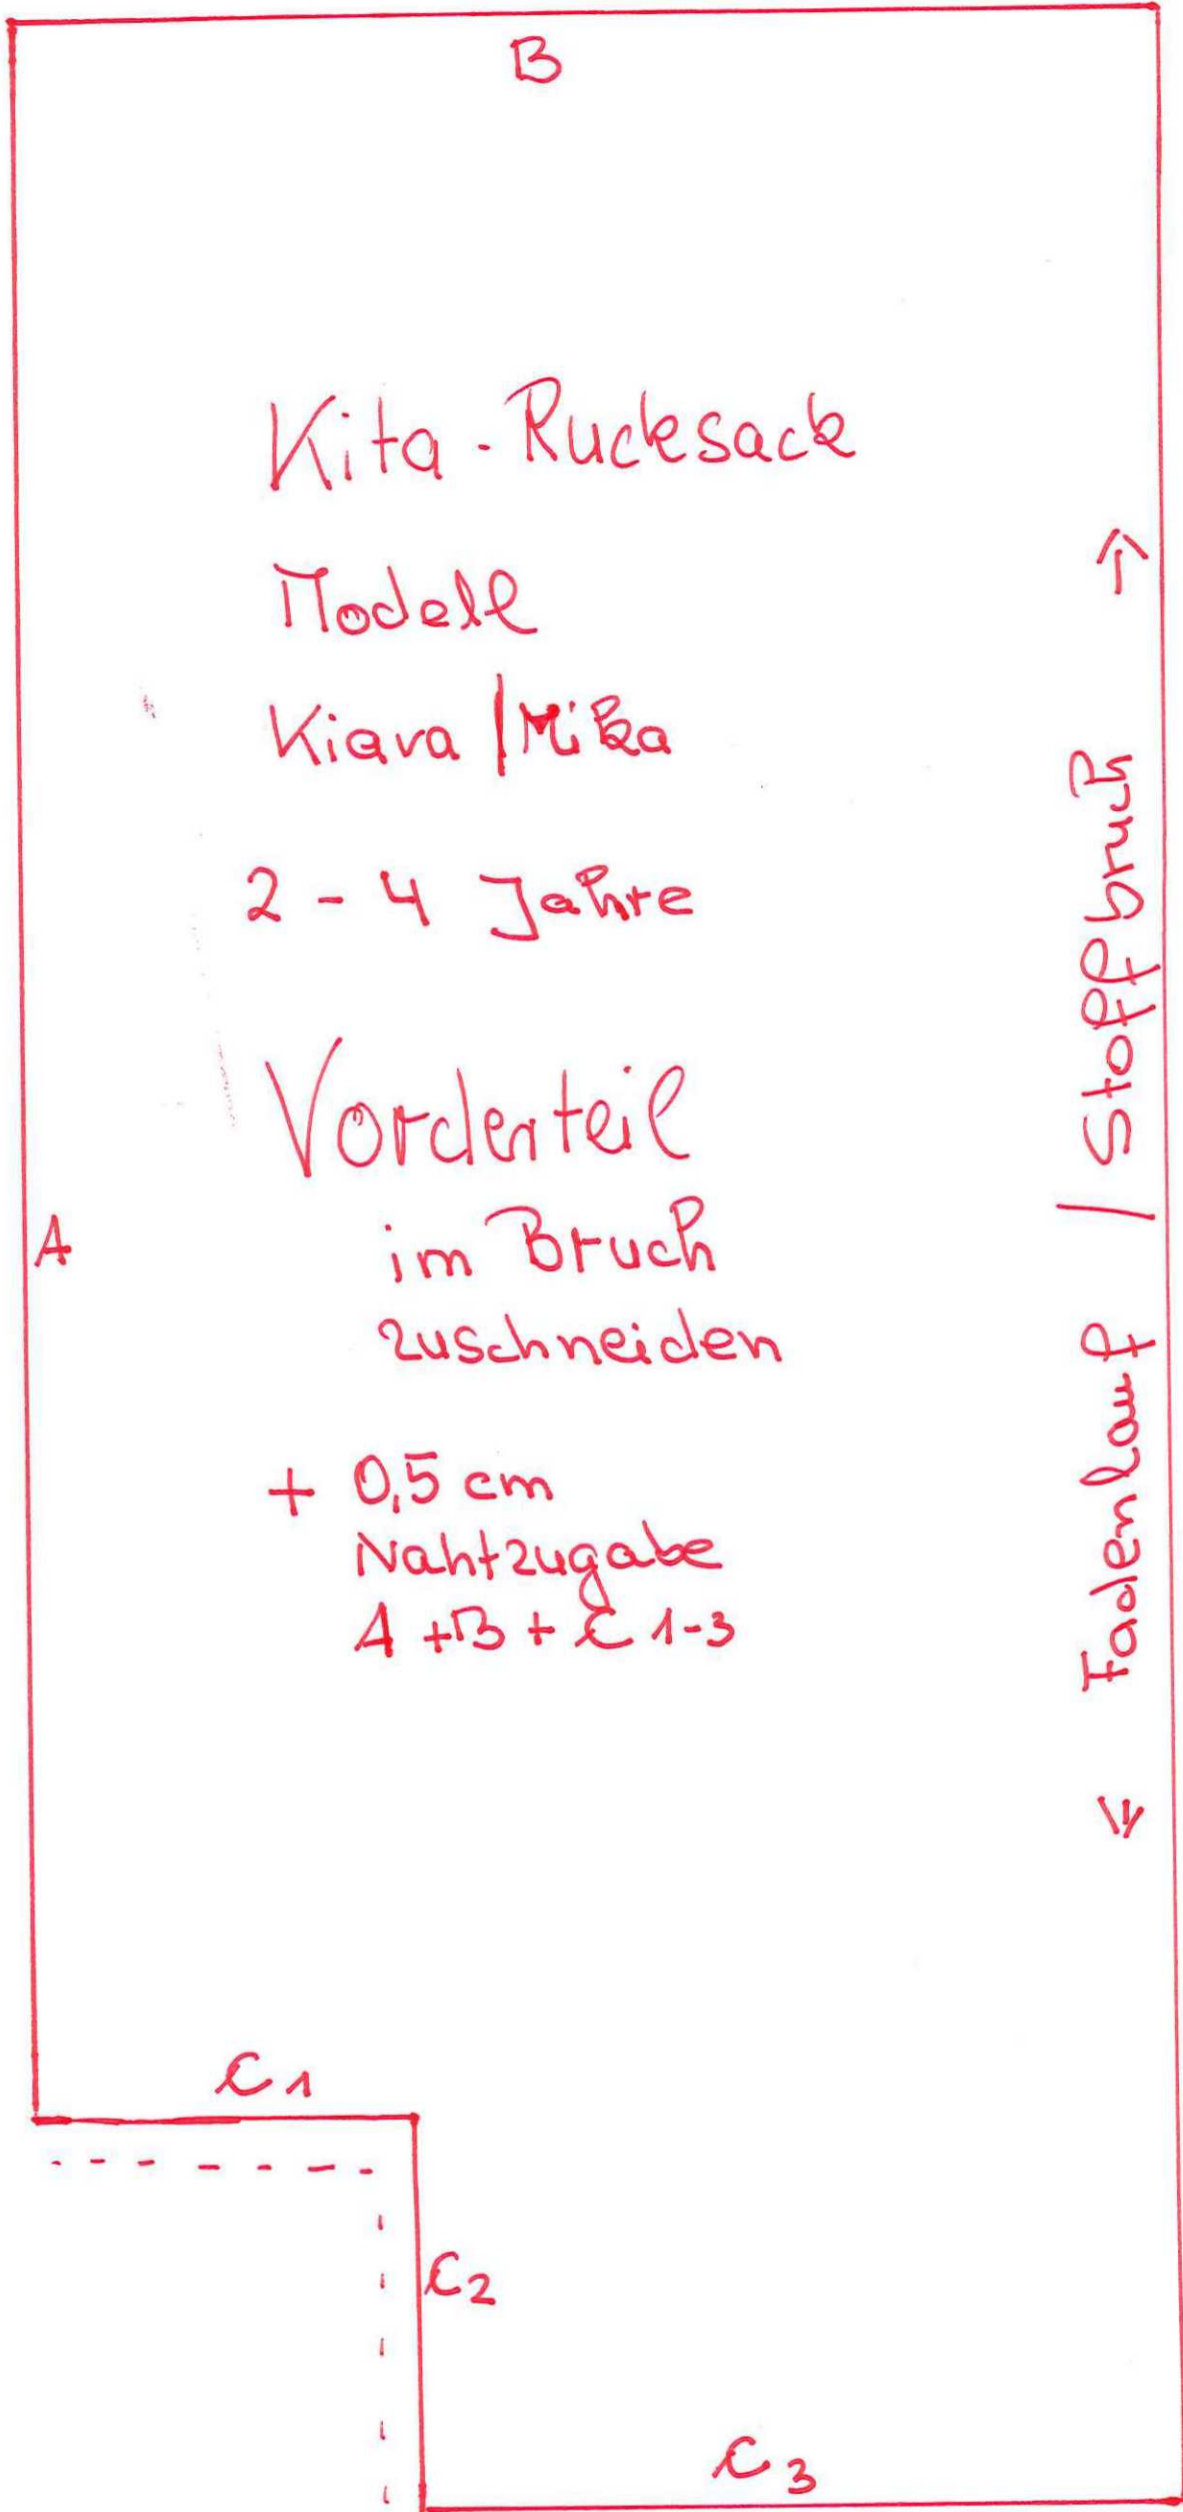 B
Kita-Rucksack
Modell
Kiara / Mika
2 - 4 Jahre
Vorderteil
im Bruch
zuschneiden
+ 0,5 cm
Nahtzugabe
A + B + C 1-3
A
Fadenlauf / Stoffbruch
C1
C2
C3